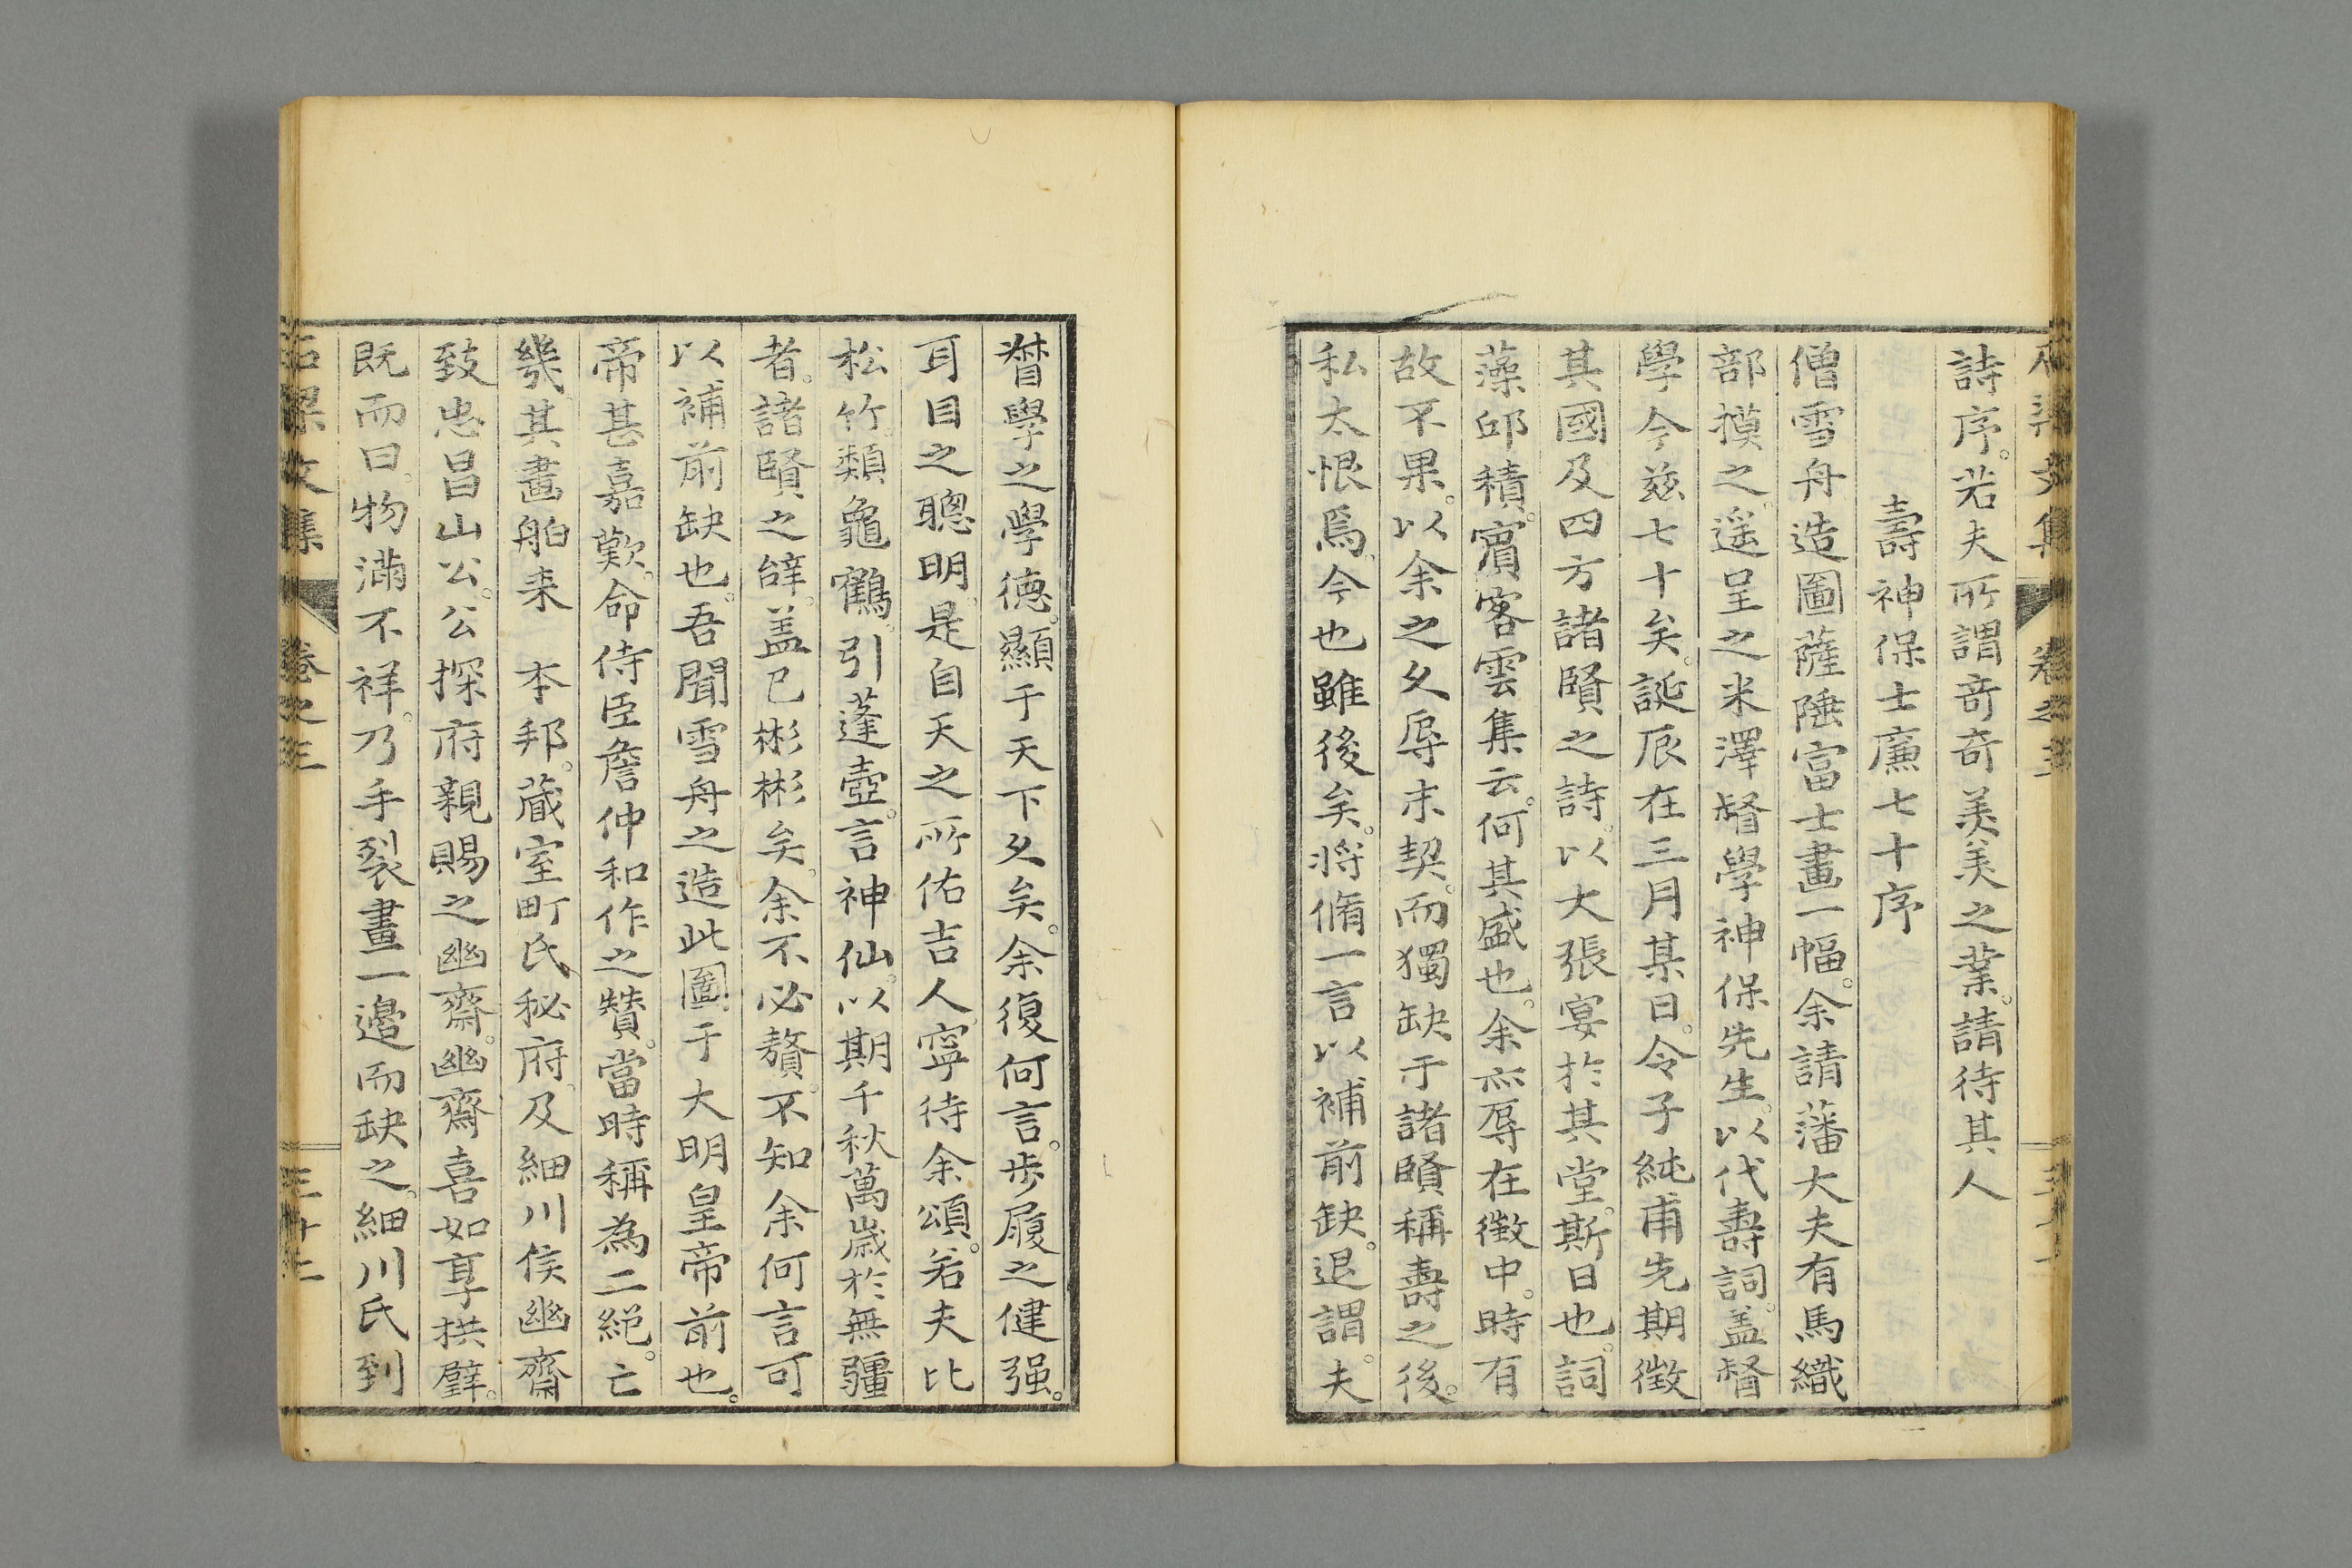 詩序。若夫所謂奇奇美美之業。請待其人
壽神保士廉七十序
僧雪舟造圖薩陲富士畫一幅。余請藩大夫有馬織
部摸之。遥呈之米澤督學神保先生。以代壽詞。盖督
學今茲七十矣。誕辰在三月某日。令子純甫先期徵
其國及四方諸賢之詩。以大張宴於其堂。斯日也。詞
藻邱積。賓客雲集云。何其盛也。余亦辱在徵中。時有
故不果。以余之久辱末契。而獨缺于諸賢稱壽之後。
私太恨焉。今也雖後矣。将脩一言以補前缺。退謂。夫
督學之學德。顯于天下久矣。余復何言。步履之健强。
耳目之聰明。是自天之所佑吉人。寧待余頌。若夫比
松竹。類龜鶴。引蓬壺。言神仙。以期千秋萬歳於無疆
者。諸賢之辭。盖已彬彬矣。余不必贅。不知余何言可
以補前缺也。吾聞雪舟之造此圖于大明皇帝前也。
帝甚嘉歎。命侍臣詹仲和作之賛。當時稱為二絶。亡
幾。其畫舶来　本邦。蔵室町氏秘府。及細川侯幽齋
致忠昌山公。公探府親賜之幽齋。幽齋喜如享拱璧。
既而曰。物滿不祥。乃手裂畫一邊而缺之。細川氏到
石梁文集
卷之三